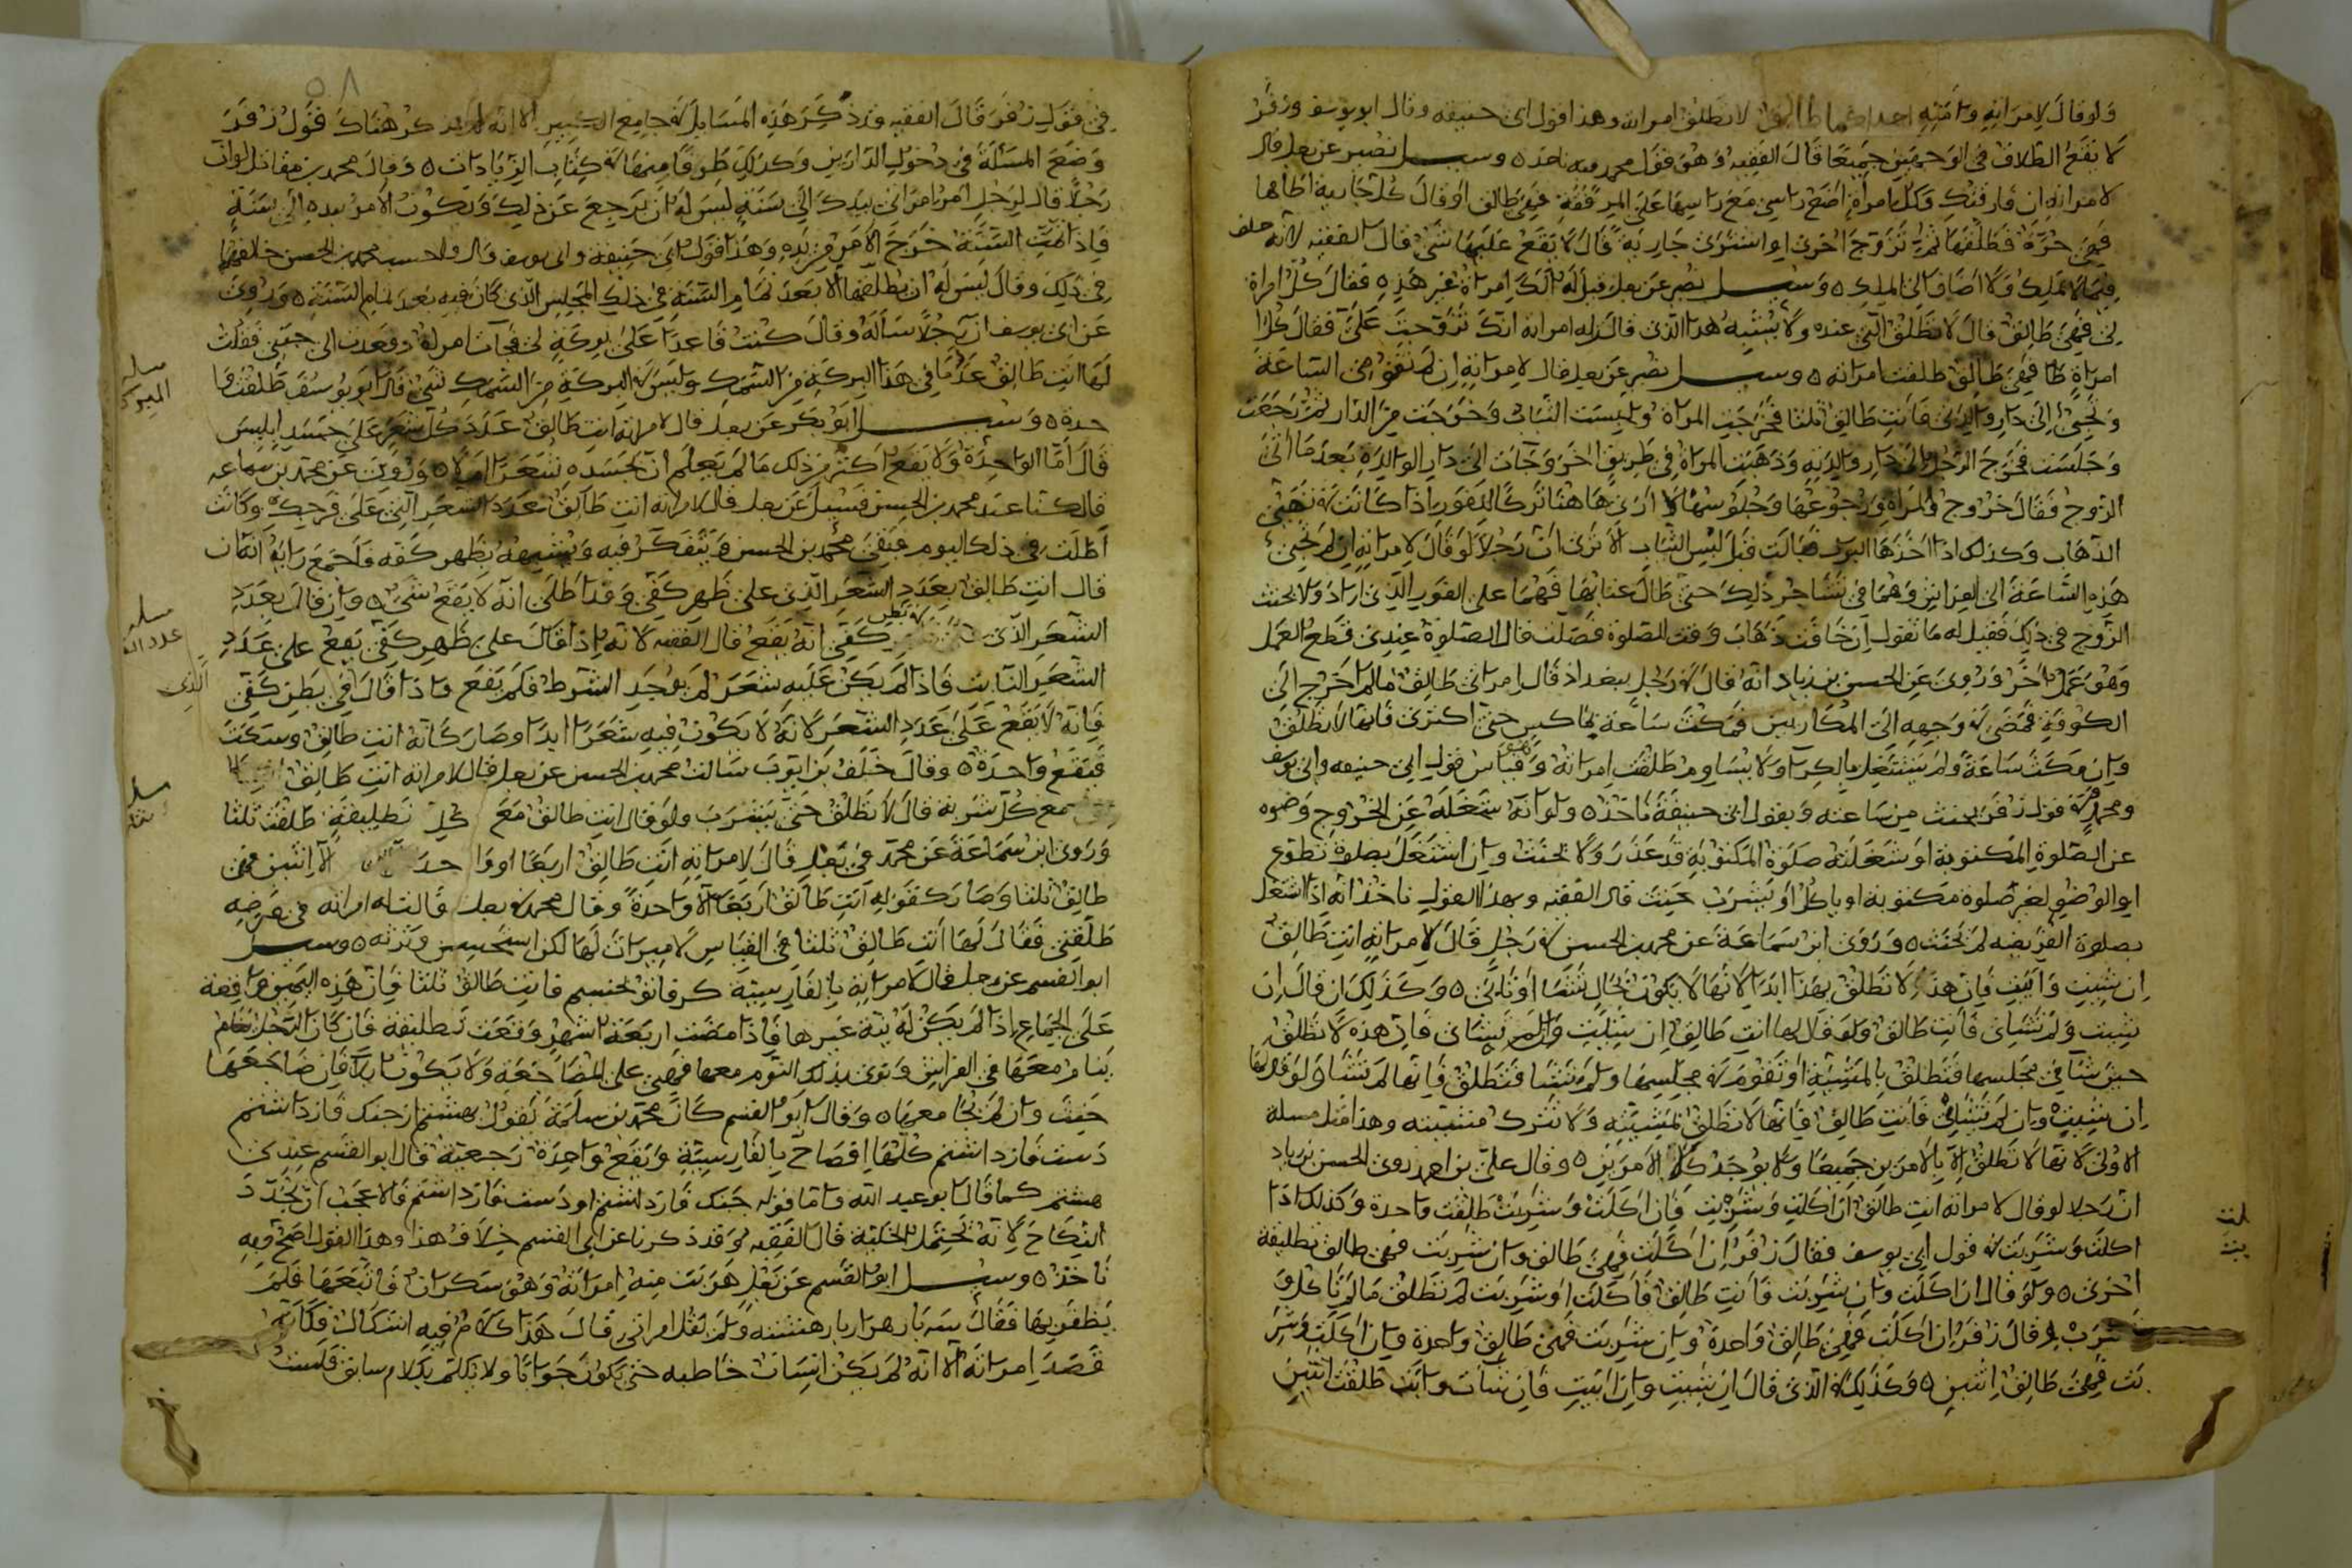 ولو قال لامراته وامته احداكما طالق لا تطلق امراته وهذا قول ابي حنيفه وقال ابو يوسف وزفر
لا يقع الطلاق في الوجهين جميعا قال الفقيه وهو قول محمد وبه ناخذ ٥ وسيل نصير عن رجل قال
لامراته ان فارقتك وكل امراة اضع راسي مع راسها على المرفقة فهي طالق او قال كل جارية اطاها
فهي حرة فطلقها ثم تزوج اخرى او اشترى جارية قال لا يقع عليها شي قال الفقيه لانه حلف
فيما لا يملك ولا اضاف الى الملك ٥ وسيل نصير عن رجل قيل له الك امراة غير هذه فقال كل امراة
لي فهي طالق قال لا تطلق التي عنده ولا يشبه هذا الذي قال له امراته انك تزوجت علي فقال كل
امراة لي فهي طالق طلقت امراته ٥ وسيل نصير عن رجل قال لامراته ان لم تقومي الساعة
وتجيي الى دار والدي فانت طالق ثلثا فخرجت المراة ولبست الثياب وخرجت من الدار ثم رجعت
وجلست فخرج الرجل الى دار والديه وذهبت المراة في طريق اخر وجات الى دار الوالدة بعد ما اتى
الزوج فقال خروج المراة ورجوعها وجلوسها لا ارى هاهنا تركا للفور اذا كانت في تهيي
الذهاب وكذلك اذا اخذها البول فبالت قبل لبس الثياب الا ترى ان رجلا لو قال لامراته ان لم تجيي
هذه الساعة الى الفراش وهما في تشاجر ذلك حتى طال عتابها فهما على الفور الذي اراد ولا يحنث
الزوج في ذلك فقيل له ما تقول ان خافت ذهاب وقت الصلوة فصلت قال الصلوة عندي قطع العمل
وهو عمل اخر وروي عن الحسن بن زياد انه قال في رجل ببغداد قال امراتي طالق ما لم اخرج الى
الكوفة فمضى في وجهه الى المكاريين فمكث ساعة يماكس حتى اكترى فانها لا تطلق
وان مكث ساعة ولم يشتغل بالكرا ولا يساوم طلقت امراته وهو قياس قول ابي حنيفه وابي يوسف
ومحمد وفي قول زفر يحنث من ساعته وبقول ابي حنيفة ناخذ ٥ ولو انه شغله عن الخروج وضوه
عن الصلوة المكتوبة او شغلته صلوة المكتوبة قد عذر ولا يحنث وان اشتغل بصلوة تطوع
او الوضو لغير صلوة مكتوبة او ياكل او يشرب حنث قال الفقيه وبهذا القول ناخذ انه اذا اشتغل
بصلوة الفريضه لم يحنث ٥ وروى ابن سماعة عن محمد بن الحسن في رجل قال لامراته انت طالق
ان شيت وابيت فان هذه لا تطلق بهذا ابدا لانها لا يكون بحال تشا او تابى ٥ وكذلك ان قال ان
شيت ولم تشاي فانت طالق ولو قال لها انت طالق ان شيت وان لم تشاي فان هذه لا تطلق
حتى تشا في مجلسها فتطلق بالمشية او تقوم من مجلسها ولم تشا فتطلق فانها لم تشا ولو قال لها
ان شيت وان لم تشاي فانت طالق فانها لا تطلق لمشيته ولا تترك مشيته وهذا مثل مسلة
الاولى لانها لا تطلق الا بالامرين جميعا ولا يوجد كلا الامرين ٥ وقال علي بن احمد روى الحسن بن زياد
ان رجلا لو قال لامراته انت طالق ان اكلت وشربت فان اكلت وشربت طلقت واحدة وكذلك اذا
اكلت وشربت في قول ابي يوسف فقال زفر ان اكلت فهي طالق وان شربت فهي طالق تطليقة
اخرى ٥ ولو قال ان اكلت وان شربت فانت طالق فاكلت او شربت لم تطلق ما لم تاكل و
تشرب و قال زفر ان اكلت فهي طالق واحدة وان شربت فهي طالق واحدة وان اكلت وشر
بت فهي طالق اثنين ٥ وكذلك الذي قال ان شيت وان ابيت فان شات وابت طلقت اثنين
٥٨
في قول زفر قال الفقيه وقد ذكر هذه المسايل في جامع الكبير الا انه لم يذكر هناك قول زفر
وضع المسلة في دخول الدارين وكذلك طرفا منها في كتاب الزيادات ٥ وقال محمد بن مقاتل لو ان
رجلا قال لرجل امر امراتي بيدك الى سنة ليس له ان يرجع عن ذلك ويكون الامر بيده الى سنة
فاذا تمت السنة خرج الامر من يده وهذا قول ابي حنيفة وابي يوسف قال ولا احسب محمد بن الحسن خالفهما
في ذلك وقال ليس له ان يطلقها الا بعد تمام السنة في ذلك المجلس الذي كان فيه بعد تمام السنة ٥ وروي
عن ابي يوسف ان رجلا ساله وقال كنت قاعدا على بركة لي فجات امراة وقعدت الى جنبي فقلت
لها انت طالق عدد ما في هذا البركة من السمك وليس في البركة من السمك شي قال ابو يوسف طلقت وا
حدة ٥ وسيل ابو بكر عن رجل قال لامراته انت طالق عدد كل شعر على جسد ابليس
قال اما الواحدة ولا يقع اكثر من ذلك ما لم يعلم ان لجسده شعر ام لا ٥ وروي عن محمد بن سماعه
قال كنا عند محمد بن الحسن فسيل عن رجل قال لامراته انت طالق بعدد الشعر التي على فرجك وكانت
اطلت في ذلك اليوم فبقي محمد بن الحسن يتفكر فيه ويشبهه بظهر كفه فاجمع رايه انه ان
قال انت طالق بعدد الشعر الذي على ظهر كفي وقد اطلى انه لا يقع شي ٥ وان قال بعدد
الشعر الذي في بطن كفي انه يقع قال الفقيه لانه اذا قال على ظهر كفي يقع على عدد
الشعر النابت فاذا لم يكن عليه شعر لم يوجد الشرط فلم يقع واذا قال في بطن كفي
فانه لا يقع على عدد الشعر لانه لا يكون فيه شعر ابدا وصار كانه انت طالق وسكت
فيقع واحدة ٥ وقال خلف بن ايوب سالت محمد بن الحسن عن رجل قال لامراته انت طالق
مع كل شربة قال لا تطلق حتى يشرب ولو قال انت طالق مع كل تطليقة طلقت ثلثا
وروى ابن سماعة عن محمد في رجل قال لامراته انت طالق اربعا او واحد الا اثنين فهي
طالق ثلثا وصار كقوله انت طالق اربعا الا واحدة وقال محمد في رجل قالت له امراته في مرضه
طلقني فقال لها انت طالق ثلثا في القياس لا ميراث لها لكن استحسن وترثه ٥ وسيل
ابو القسم عن رجل قال لامراته بالفارسية كر فاتو نخسبم فانت طالق ثلثا فان هذه اليمين واقعة
على الجماع اذا لم يكن له نية غيرها فاذا مضت اربعة اشهر وقعت تطليقة فان كان الرجل
ينام معها في الفراش ونوى بذلك النوم معها فهي على المضاجعة ولا يكون فان ضاجعها
حنث وان لم يجامعها ٥ وقال ابو القسم كان محمد بن سلمة يقول بهشتم از جنك فازداشتم
دست فازداشتم كلها افصاح بالفارسية ويقع واحدة رجعية قال ابو القسم عندي
هشتم كما قال ابو عبد الله واما قوله جنك فازداشتم او دست فازداشتم فلا عجب ان يجدد
النكاح لانه يحتمل الخلية قال الفقيه وقد ذكرنا عن ابي القسم خلاف هذا وهذا القول اصح وبه
ناخذ ٥ وسيل ابو القسم عن رجل هربت منه امراته وهو سكران فاتبعها فلم
يظفر بها فقال سه بار هزار بار هشته ولم يقل امراتي قال هذا كلام فيه اشكال فكانه
قصد امراته الا انه لم يكن انسان خاطبه حتى يكون جوابا ولا تكلم بكلام سابق فلست